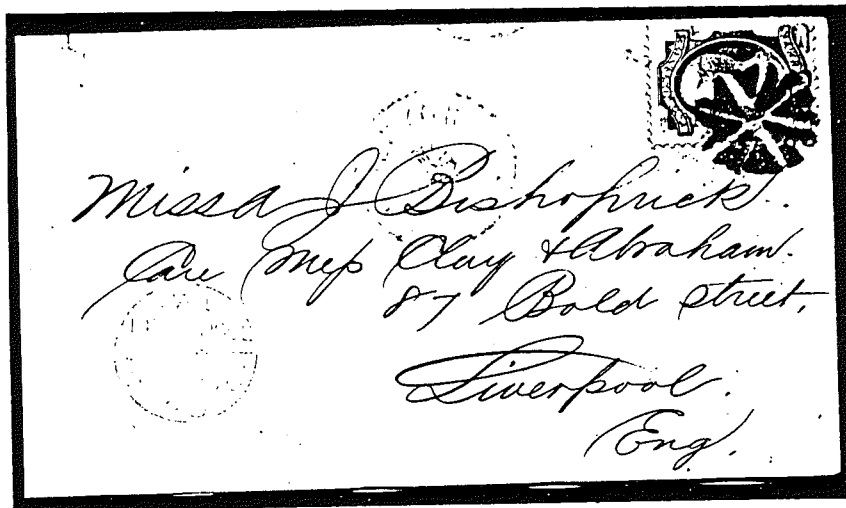 Miss A J Bishoprick.
Care Mess Clay & Abraham.
87 Bold Street,
Liverpool.
Eng.